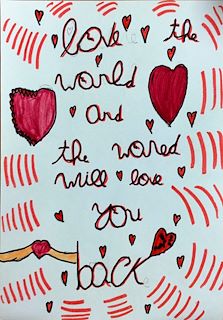 love the
world
and
the wored
will love
you
back